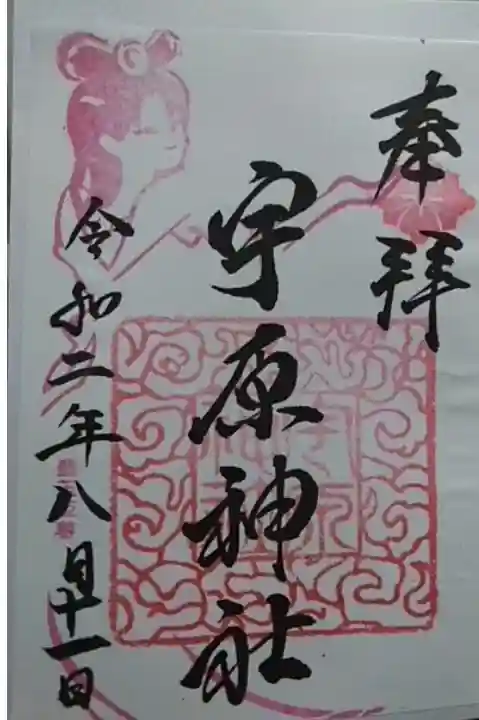 奉拝
宇原神社
令和二年八月十一日